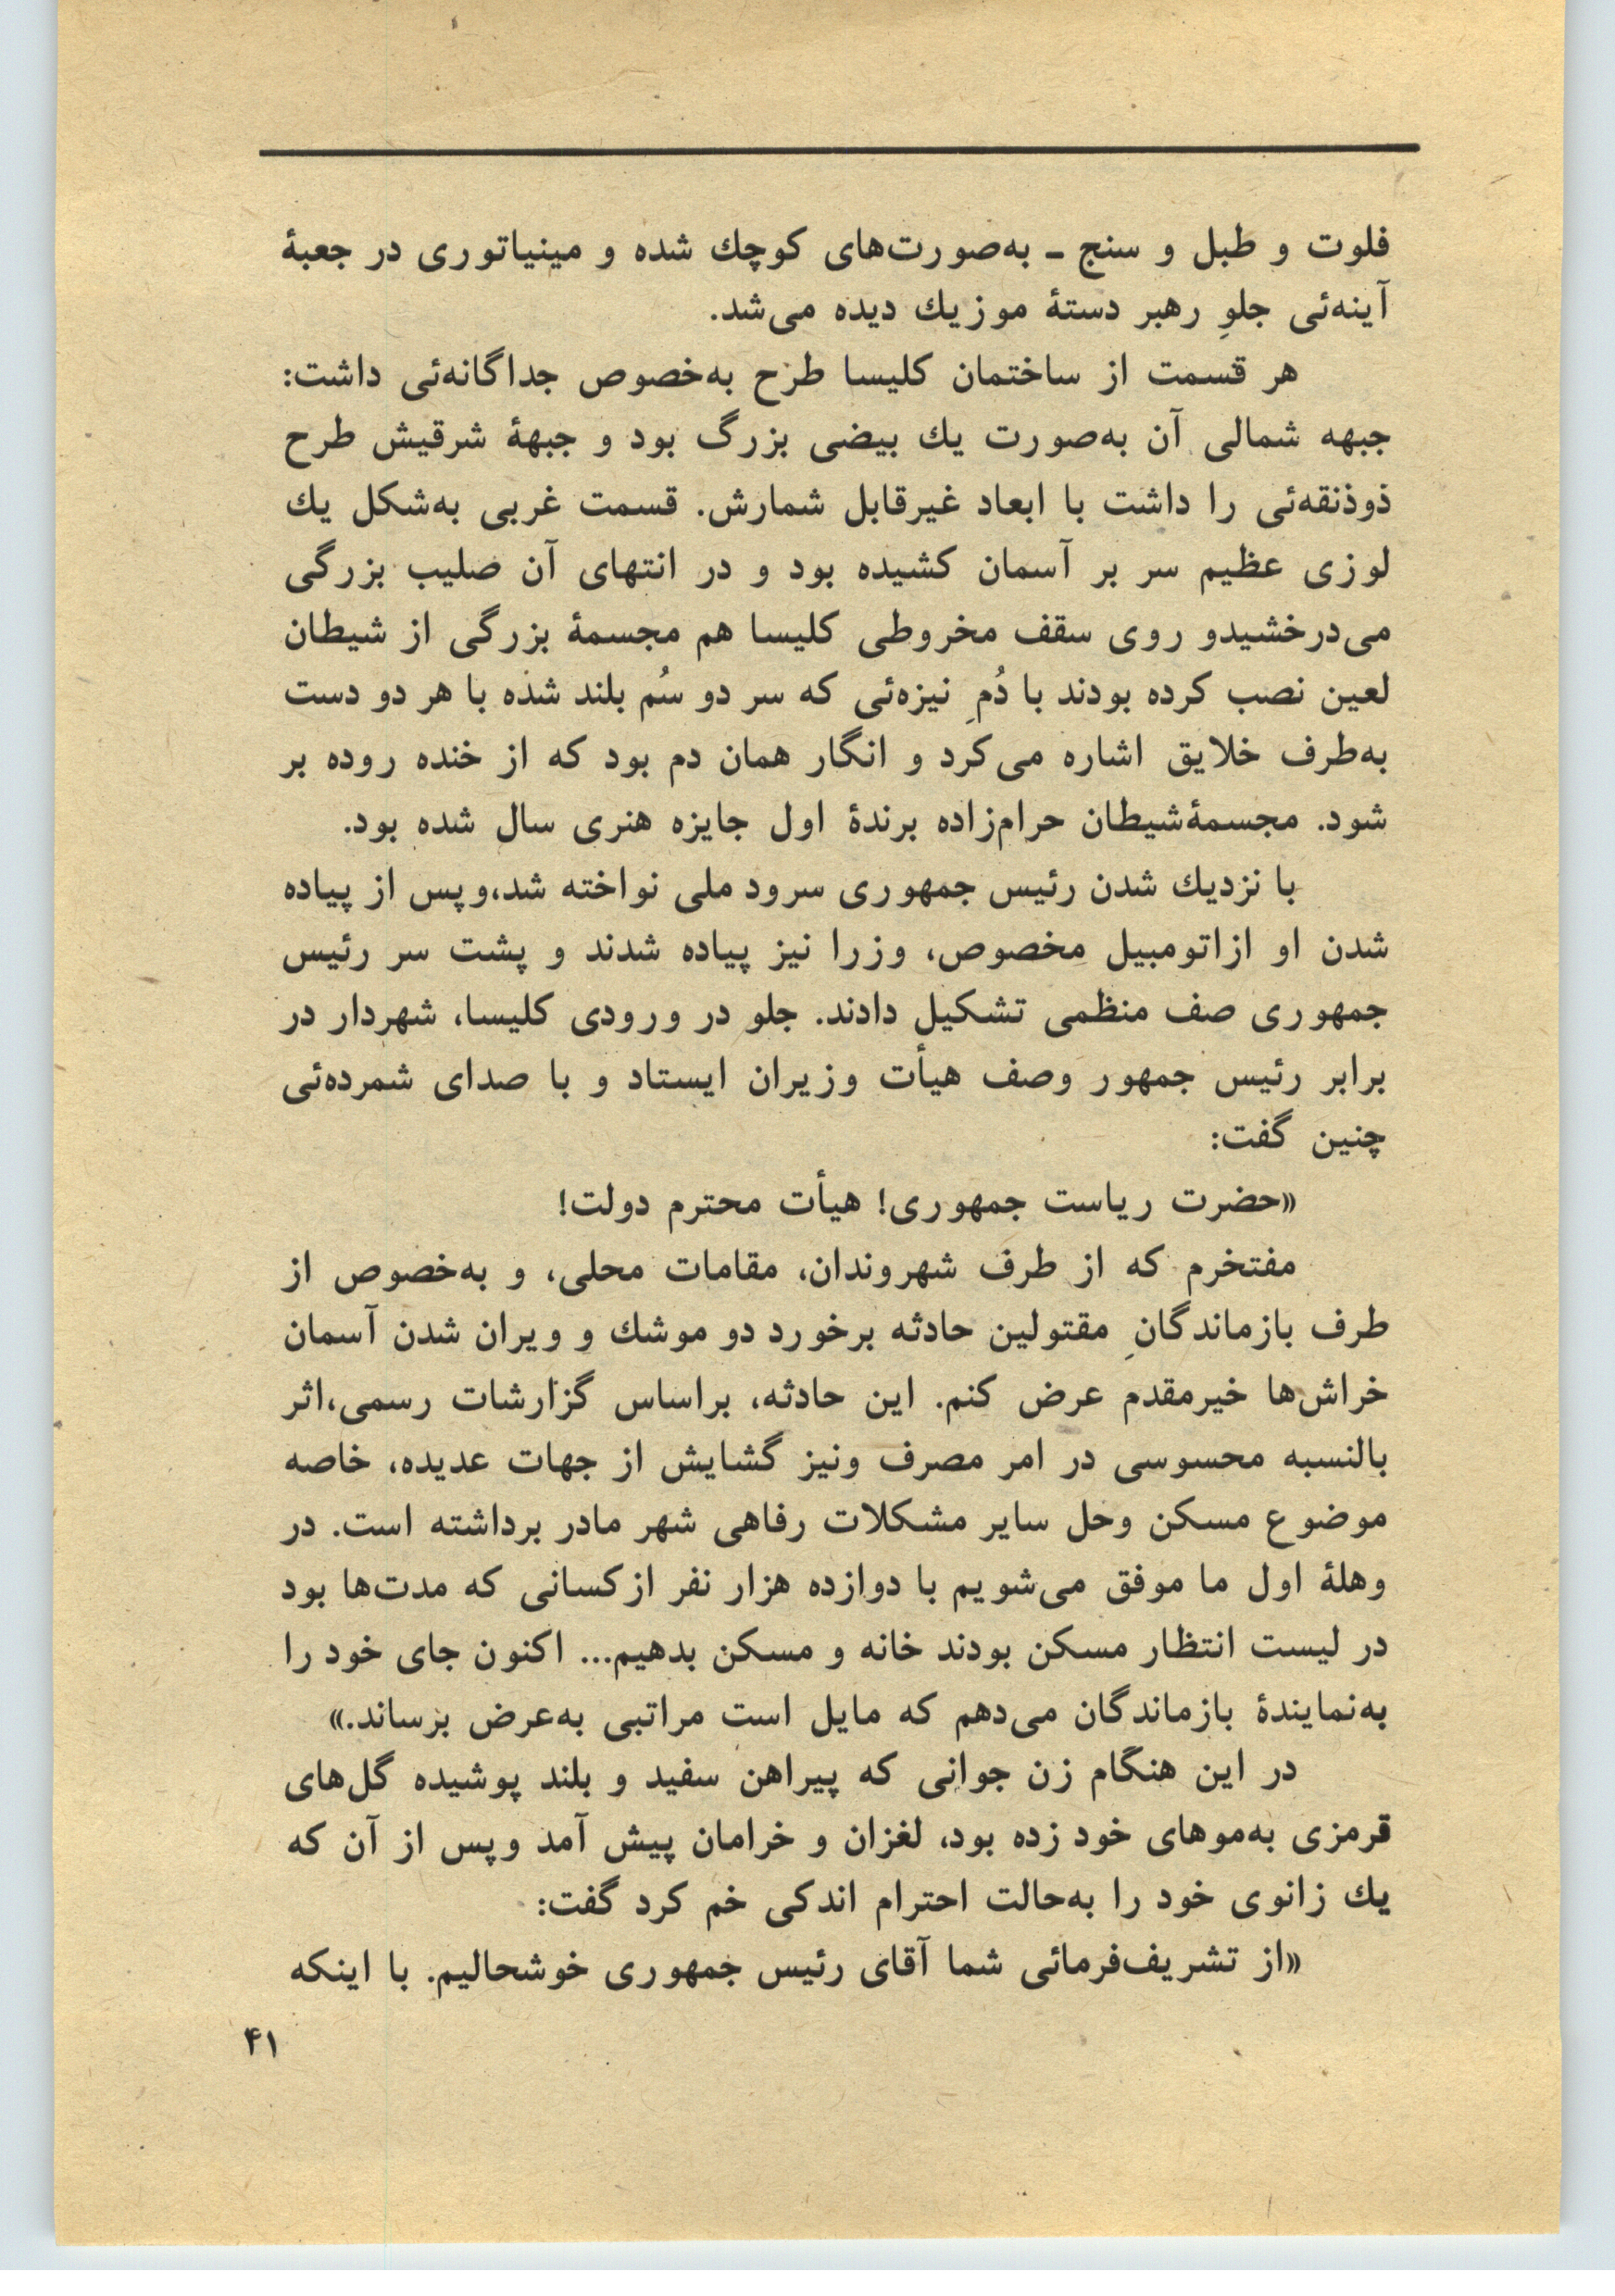 فلوت و طبل و سنج ـ به‌صورت‌های کوچك شده و مینیاتوری در جعبهٔ
آینه‌ئی جلوِ رهبر دستهٔ موزیك دیده می‌شد.
هر قسمت از ساختمان کلیسا طرح به‌خصوص جداگانه‌ئی داشت:
جبهه شمالی آن به‌صورت یك بیضی بزرگ بود و جبههٔ شرقیش طرح
ذوذنقه‌ئی را داشت با ابعاد غیرقابل شمارش. قسمت غربی به‌شکل یك
لوزی عظیم سر بر آسمان کشیده بود و در انتهای آن صلیب بزرگی
می‌درخشیدو روی سقف مخروطی کلیسا هم مجسمهٔ بزرگی از شیطان
لعین نصب کرده بودند با دُمِ نیزه‌ئی که سر دو سُم بلند شده با هر دو دست
به‌طرف خلایق اشاره می‌کرد و انگار همان دم بود که از خنده روده بر
شود. مجسمهٔ‌شیطان حرام‌زاده برندهٔ اول جایزه هنری سال شده بود.
با نزدیك شدن رئیس جمهوری سرود ملی نواخته شد،وپس از پیاده
شدن او ازاتومبیل مخصوص، وزرا نیز پیاده شدند و پشت سر رئیس
جمهوری صف منظمی تشکیل دادند. جلو در ورودی کلیسا، شهردار در
برابر رئیس جمهور وصف هیأت وزیران ایستاد و با صدای شمرده‌ئی
چنین گفت:
«حضرت ریاست جمهوری! هیأت محترم دولت!
مفتخرم که از طرف شهروندان، مقامات محلی، و به‌خصوص از
طرف بازماندگانِ مقتولین حادثه برخورد دو موشك و ویران شدن آسمان
خراش‌ها خیرمقدم عرض کنم. این حادثه، براساس گزارشات رسمی،اثر
بالنسبه محسوسی در امر مصرف ونیز گشایش از جهات عدیده، خاصه
موضوع مسکن وحل سایر مشکلات رفاهی شهر مادر برداشته است. در
وهلهٔ اول ما موفق می‌شویم با دوازده هزار نفر ازکسانی که مدت‌ها بود
در لیست انتظار مسکن بودند خانه و مسکن بدهیم... اکنون جای خود را
به‌نمایندهٔ بازماندگان می‌دهم که مایل است مراتبی به‌عرض برساند.»
در این هنگام زن جوانی که پیراهن سفید و بلند پوشیده گل‌های
قرمزی به‌موهای خود زده بود، لغزان و خرامان پیش آمد وپس از آن که
یك زانوی خود را به‌حالت احترام اندکی خم کرد گفت:
«از تشریف‌فرمائی شما آقای رئیس جمهوری خوشحالیم. با اینکه
۴۱